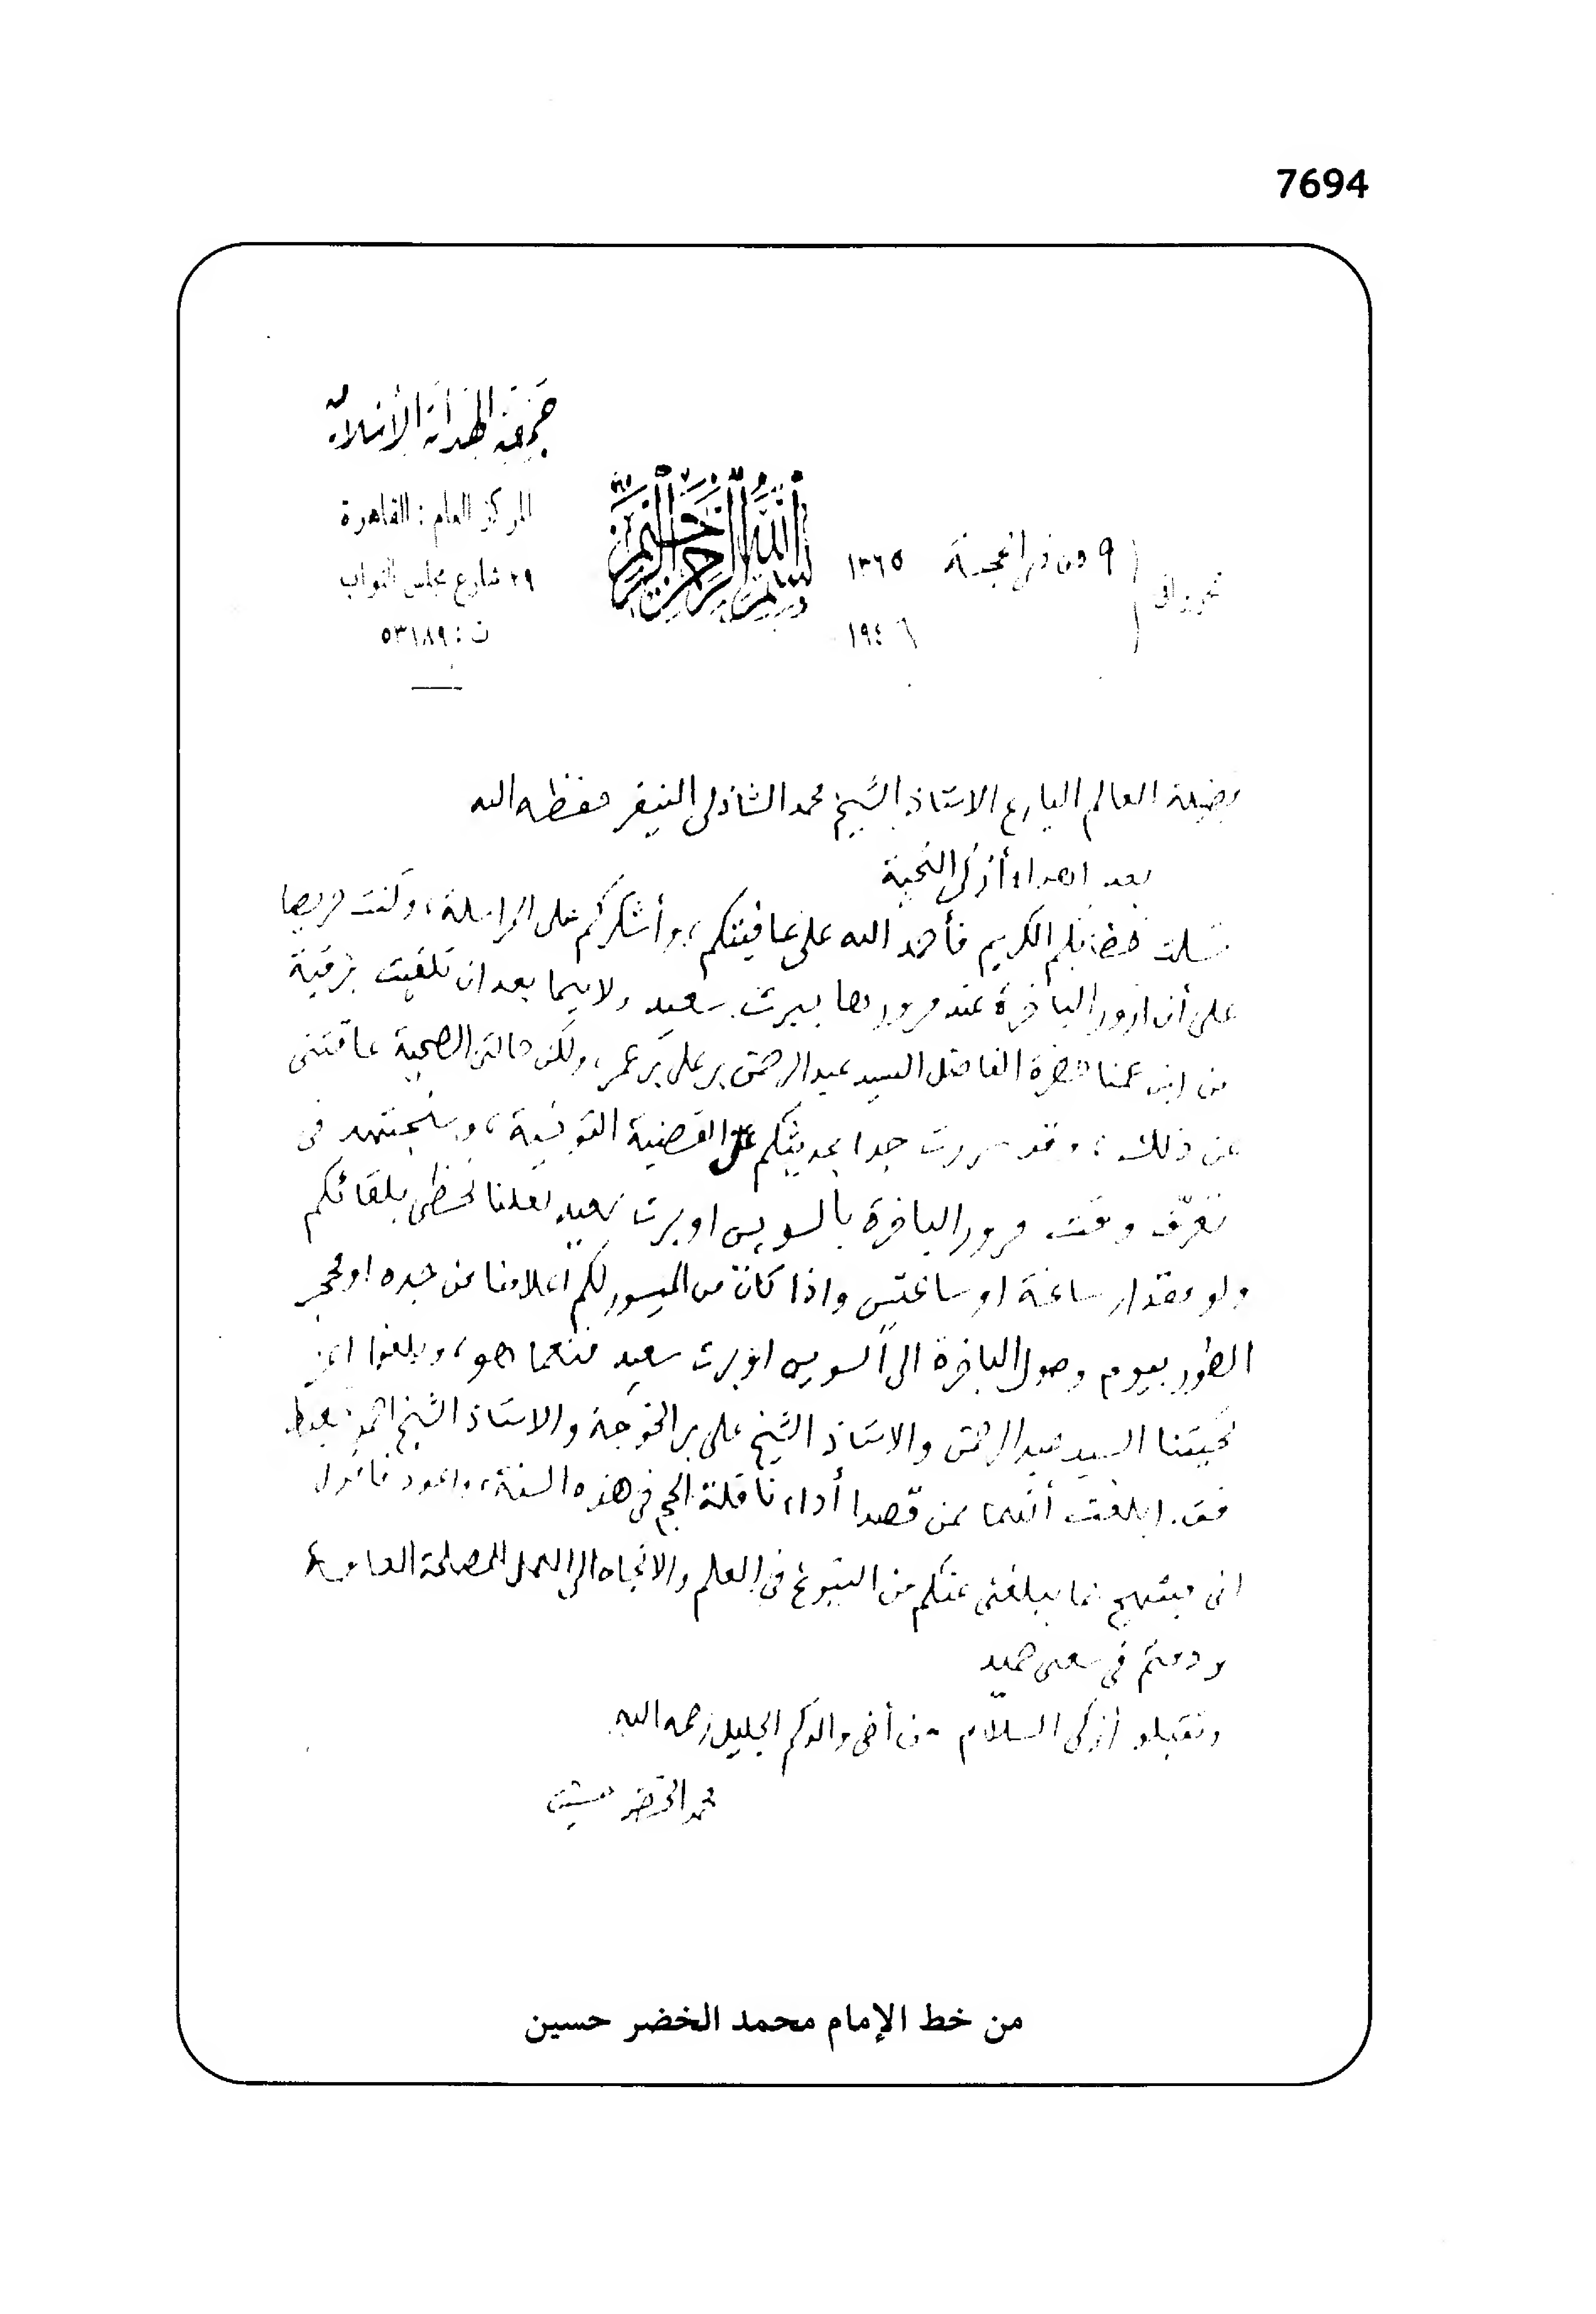 7694
جمعية الهداية الإسلامية
المركز العام : القاهرة
٢٩ شارع مجلس النواب
ت : ٥٣١٨٩
بسم الله الرحمن الرحيم
تحريرا في ٩ من ذي الحجة ١٣٦٥
١٩٤٦
فضيلة العالم البارع الاستاذ الشيخ محمد الشاذلى النيفر حفظه الله
بعد اهداء أزكى التحية
تسلمت خطابكم الكريم فأحمد الله على عافيتكم، وأشكركم على المراسلة، وكنت حريصا
على أن ازور الباخرة عند مرورها ببرت سعيد ولا سيما بعد ان تلقيت برقية
من ابن عمنا حضرة الفاضل السيد عبد الرحمن بن على بن عمر، ولكن حالتى الصحية عاقتنى
عن ذلك، وقد سررت جدا بحديثكم عن القضية التونسية، وسنجتهد فى
تعرّف وقت مرور الباخرة بالسويس او برت سعيد لعلنا نحظى بلقائكم
ولو مقدار ساعة او ساعتين واذا كان من الميسور لكم اعلامنا من جده او محجر
الطور بيوم وصول الباخرة الى السويس او برت سعيد فنعما هو، وبلغوا
تحيتنا السيد عبد الرحمن والاستاذ الشيخ على بن الخوجة والاستاذ الشيخ
فقد ابلغت أنهما ممن قصدا أداء نافلة الحج فى هذه السنة، واعود فاقول
انى مبتهج بما يبلغنى عنكم من النبوغ فى العلم والاتجاه الى العمل للمصلحة العامة
ودمتم فى سعى حميد
وتقبلو أزكى السلام من أخى والدكم الجليل رحمه الله
محمد الخضر حسين
من خط الإمام محمد الخضر حسين